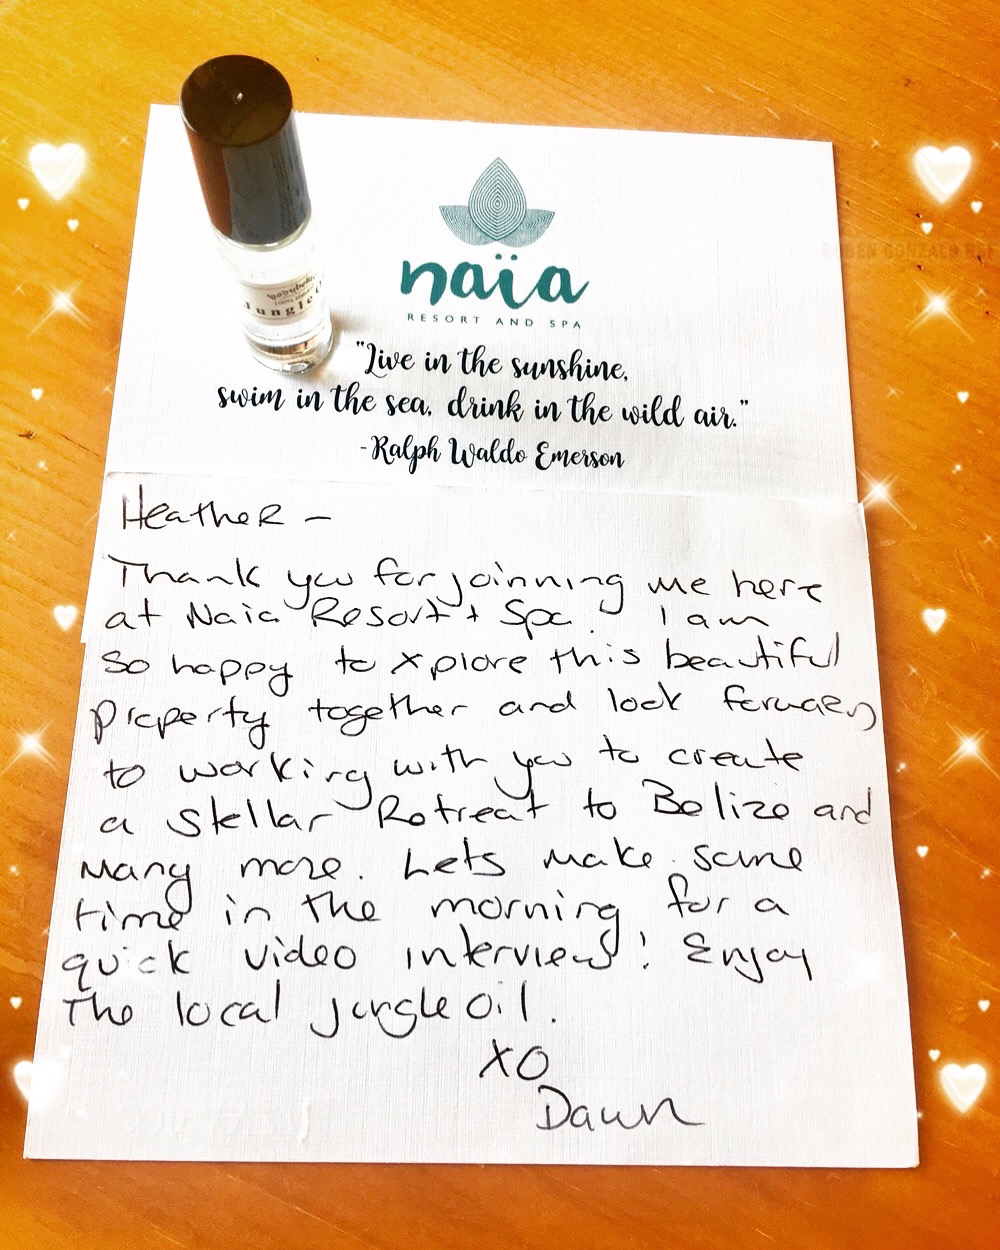 Jungle
naïa
RESORT AND SPA
"Live in the sunshine,
swim in the sea, drink in the wild air."
-Ralph Waldo Emerson
HeatheR –
Thank you for joinning me here
at Naia Resort + Spa. I am
So happy to xplore this beautiful
property together and look forward
to working with you to create
a Stellar Retreat to Belize and
Many more. Lets make some
time in the morning for a
quick video interview! Enjoy
The local jungle oil.
XO
Dawn